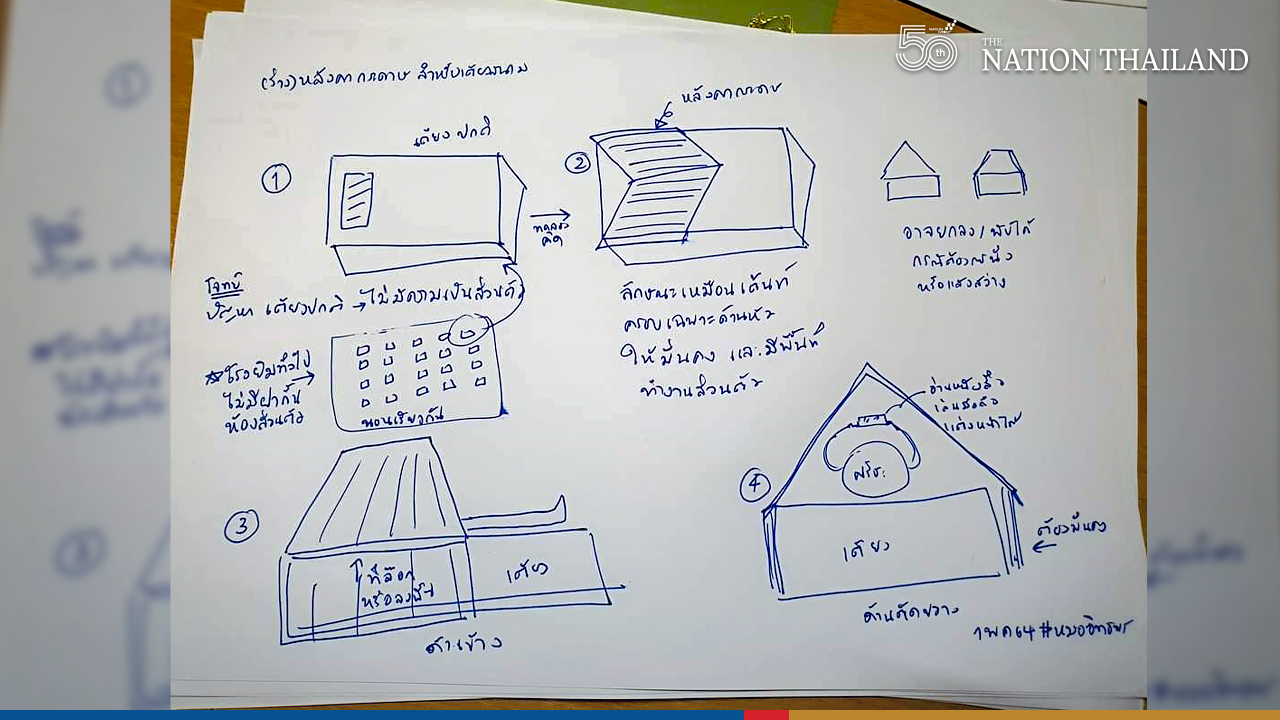 50th
THE
NATION THAILAND
(ร่าง) หลังคากระดาษ สำหรับเตียงสนาม
1
เตียงปกติ
ทดลอง
คิด
2
หลังคากระดาษ
อาจยกลง/พับได้
กรณีต้องการนั่ง
หรือแสงสว่าง
โจทย์
ปัญหา เตียงปกติ → ไม่มีความเป็นส่วนตัว
โรงยิมทั่วไป
ไม่มีฝากั้น
ห้องส่วนตัว
นอนเรียงกัน
ลักษณะเหมือนเต็นท์
ครอบเฉพาะด้านหัว
ให้มั่นคง และมีพื้นที่
ทำงานส่วนตัว
3
ที่ล็อก
หรือลงพื้น
เตียง
ด้านข้าง
4
อ่านหนังสือ
เล่นมือถือ
แต่งหน้าได้
ศรีษะ
เตียง
ต้องมั่นคง
ด้านตัดขวาง
1 พค 64 #หมออิทธพร